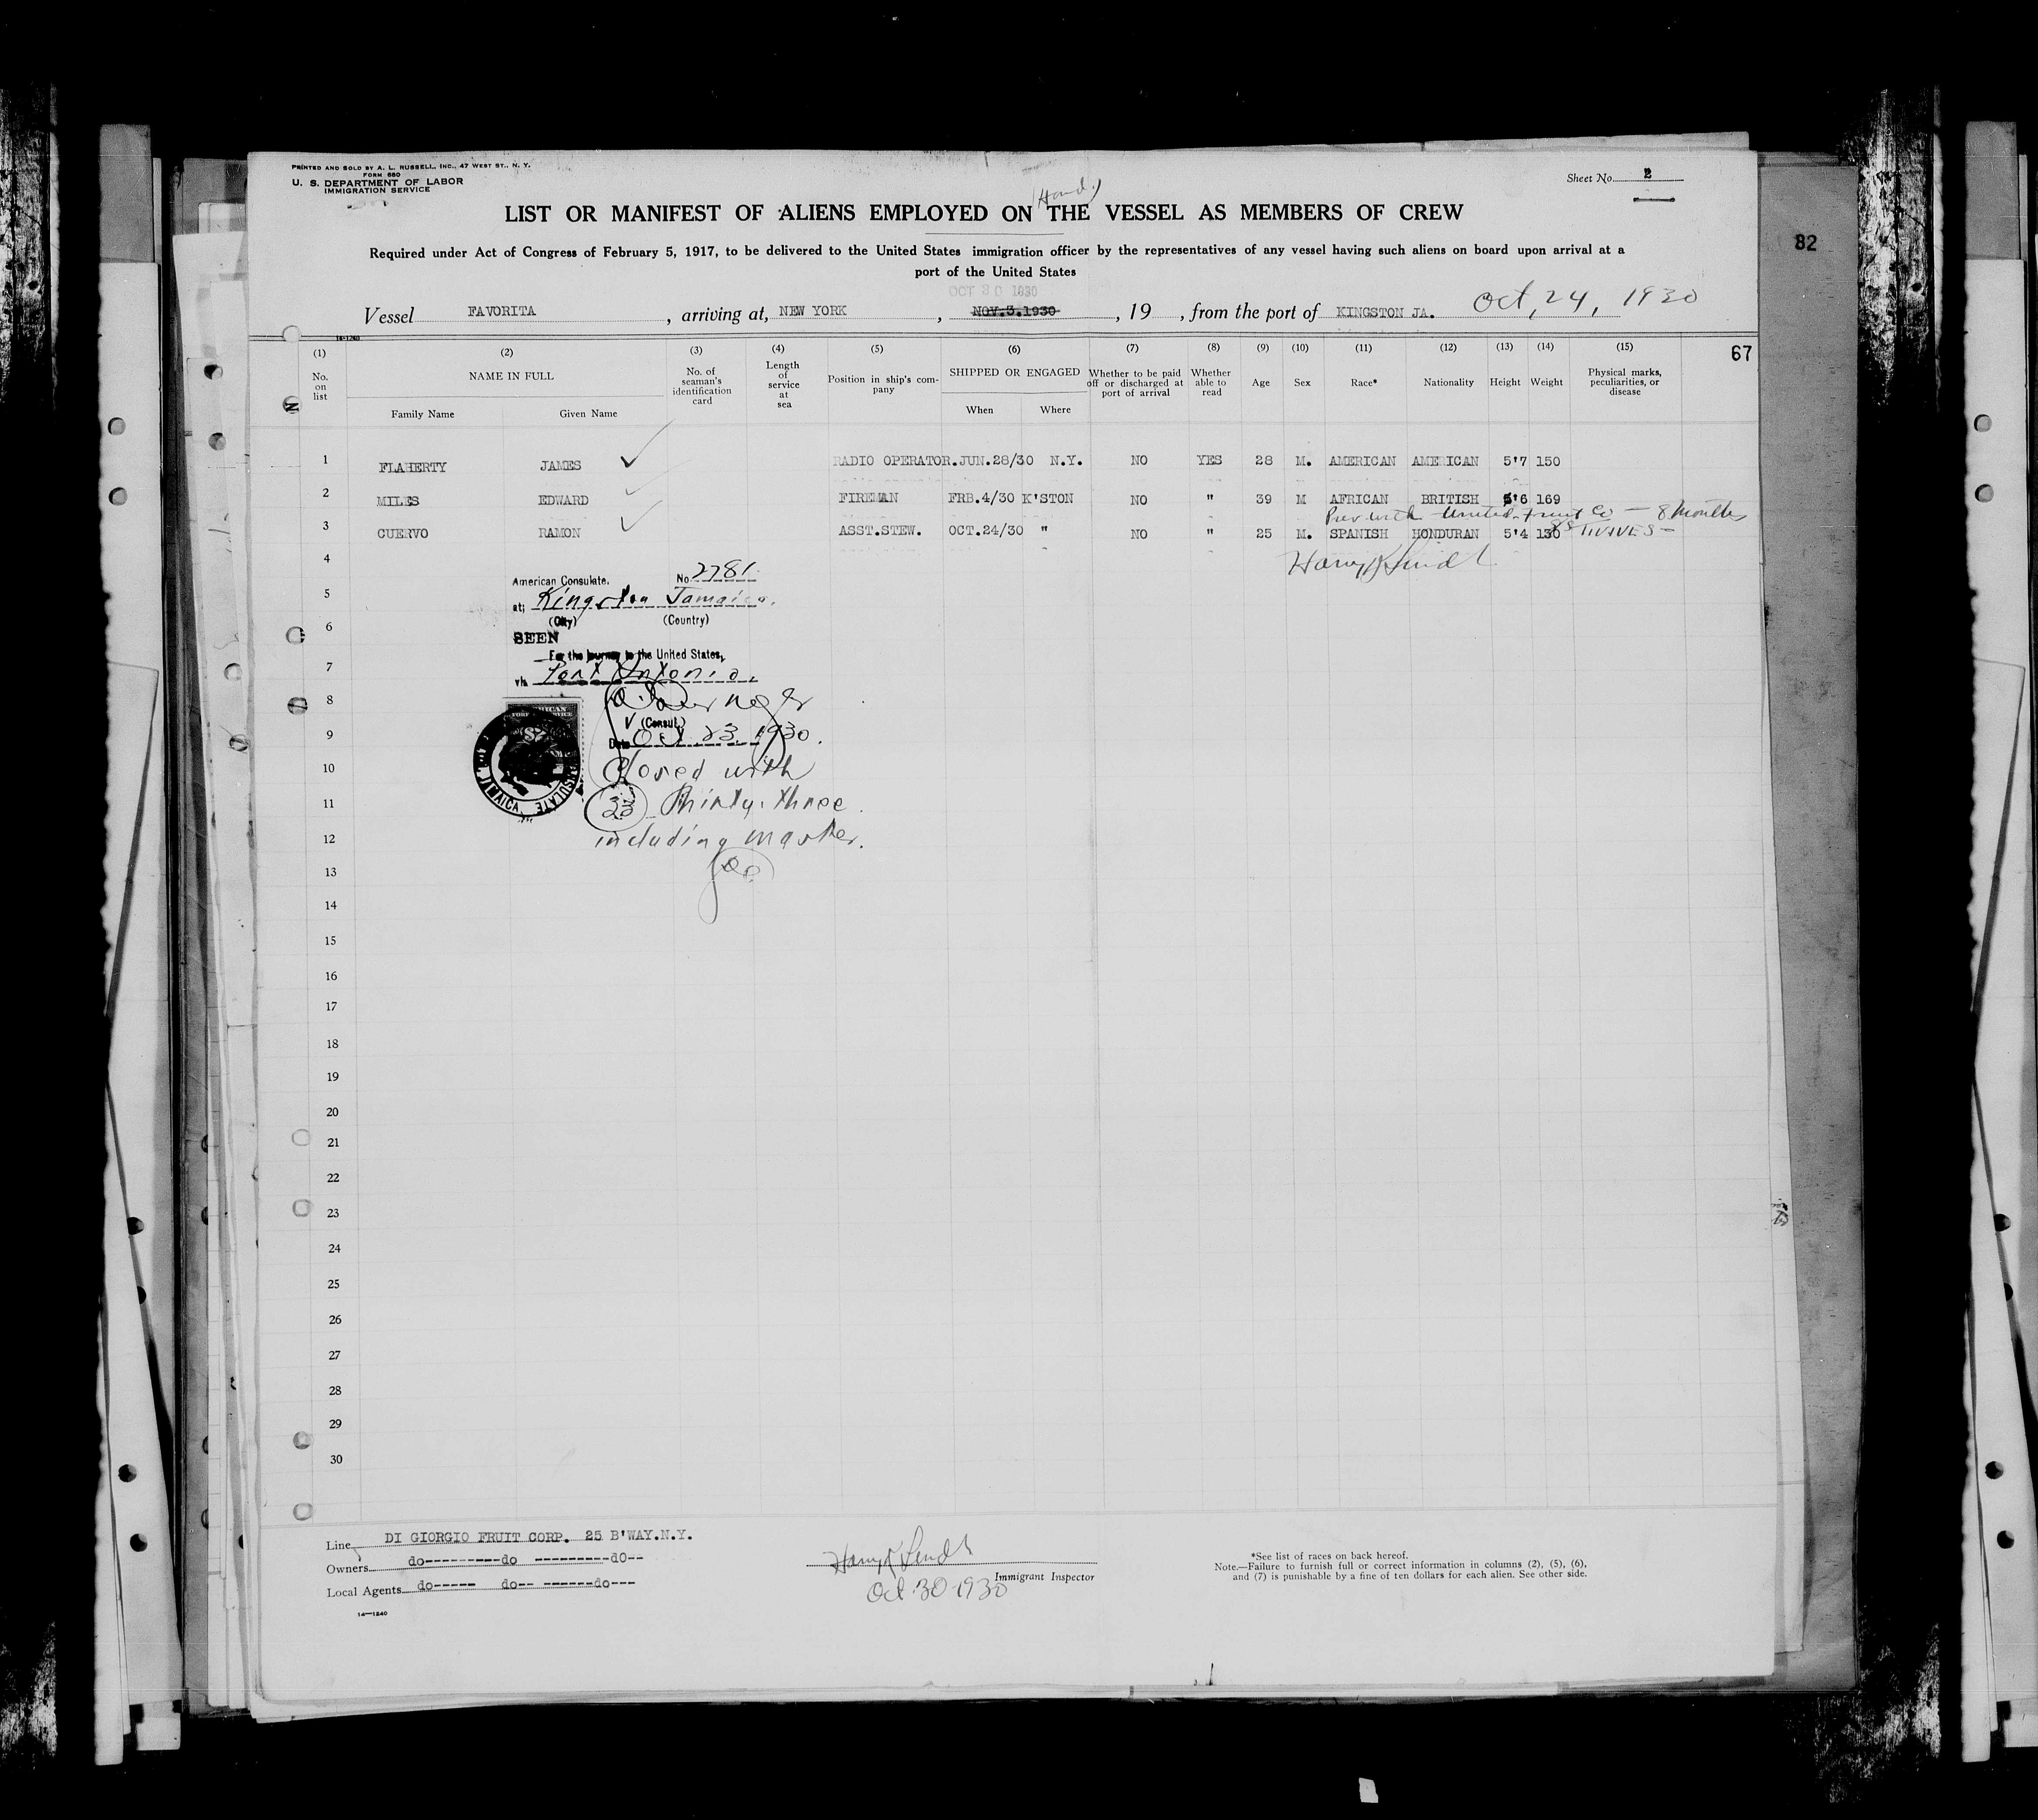 PRINTED AND SOLD BY A. L. RUSSELL, INC., 47 WEST ST., N. Y.
FORM 680
U. S. DEPARTMENT OF LABOR
IMMIGRATION SERVICE
Sheet No. 2
(Hond.)
LIST OR MANIFEST OF ALIENS EMPLOYED ON THE VESSEL AS MEMBERS OF CREW
82
Required under Act of Congress of February 5, 1917, to be delivered to the United States immigration officer by the representatives of any vessel having such aliens on board upon arrival at a
port of the United States
OCT 30 1930
Vessel FAVORITA, arriving at, NEW YORK, NOV.3.1930, 19, from the port of KINGSTON JA. Oct, 24, 1930
14-1240
(1) (2) (3) (4) (5) (6) (7) (8) (9) (10) (11) (12) (13) (14) (15) 67
No. on list NAME IN FULL No. of seaman's identification card Length of service at sea Position in ship's company SHIPPED OR ENGAGED Whether to be paid off or discharged at port of arrival Whether able to read Age Sex Race* Nationality Height Weight Physical marks, peculiarities, or disease
Family Name Given Name When Where
1 FLAHERTY JAMES RADIO OPERATOR. JUN.28/30 N.Y. NO YES 28 M. AMERICAN AMERICAN 5'7 150
2 MILES EDWARD FIREMAN FRB.4/30 K'STON NO " 39 M AFRICAN BRITISH 5'6 169
Prev with United Fruit Co — 8 Months
3 CUERVO RAMON ASST.STEW. OCT.24/30 " NO " 25 M. SPANISH HONDURAN 5'4 130
SS TIVIVES —
4
American Consulate. No 2781
5
at; Kingston Jamaica.
(City) (Country)
6
SEEN
For the journey to the United States,
7
via Port Antonio.
8
V (Consul)
9
Date Oct 23, 1930.
10
Closed with
11
33 Thirty-three
12
including master.
13
14
15
16
17
18
19
20
21
22
23
24
25
26
27
28
29
30
Line DI GIORGIO FRUIT CORP. 25 B'WAY.N.Y.
Owners do---------do ---------dO--
Local Agents do----- do-- ------do---
14—1240
Immigrant Inspector
Oct 30 1930
*See list of races on back hereof.
Note.—Failure to furnish full or correct information in columns (2), (5), (6),
and (7) is punishable by a fine of ten dollars for each alien. See other side.